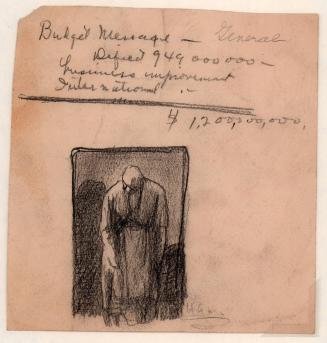 Budget Message — General
Deficit 949 000 000 —
business improvement
International
$ 1,200,000,000,